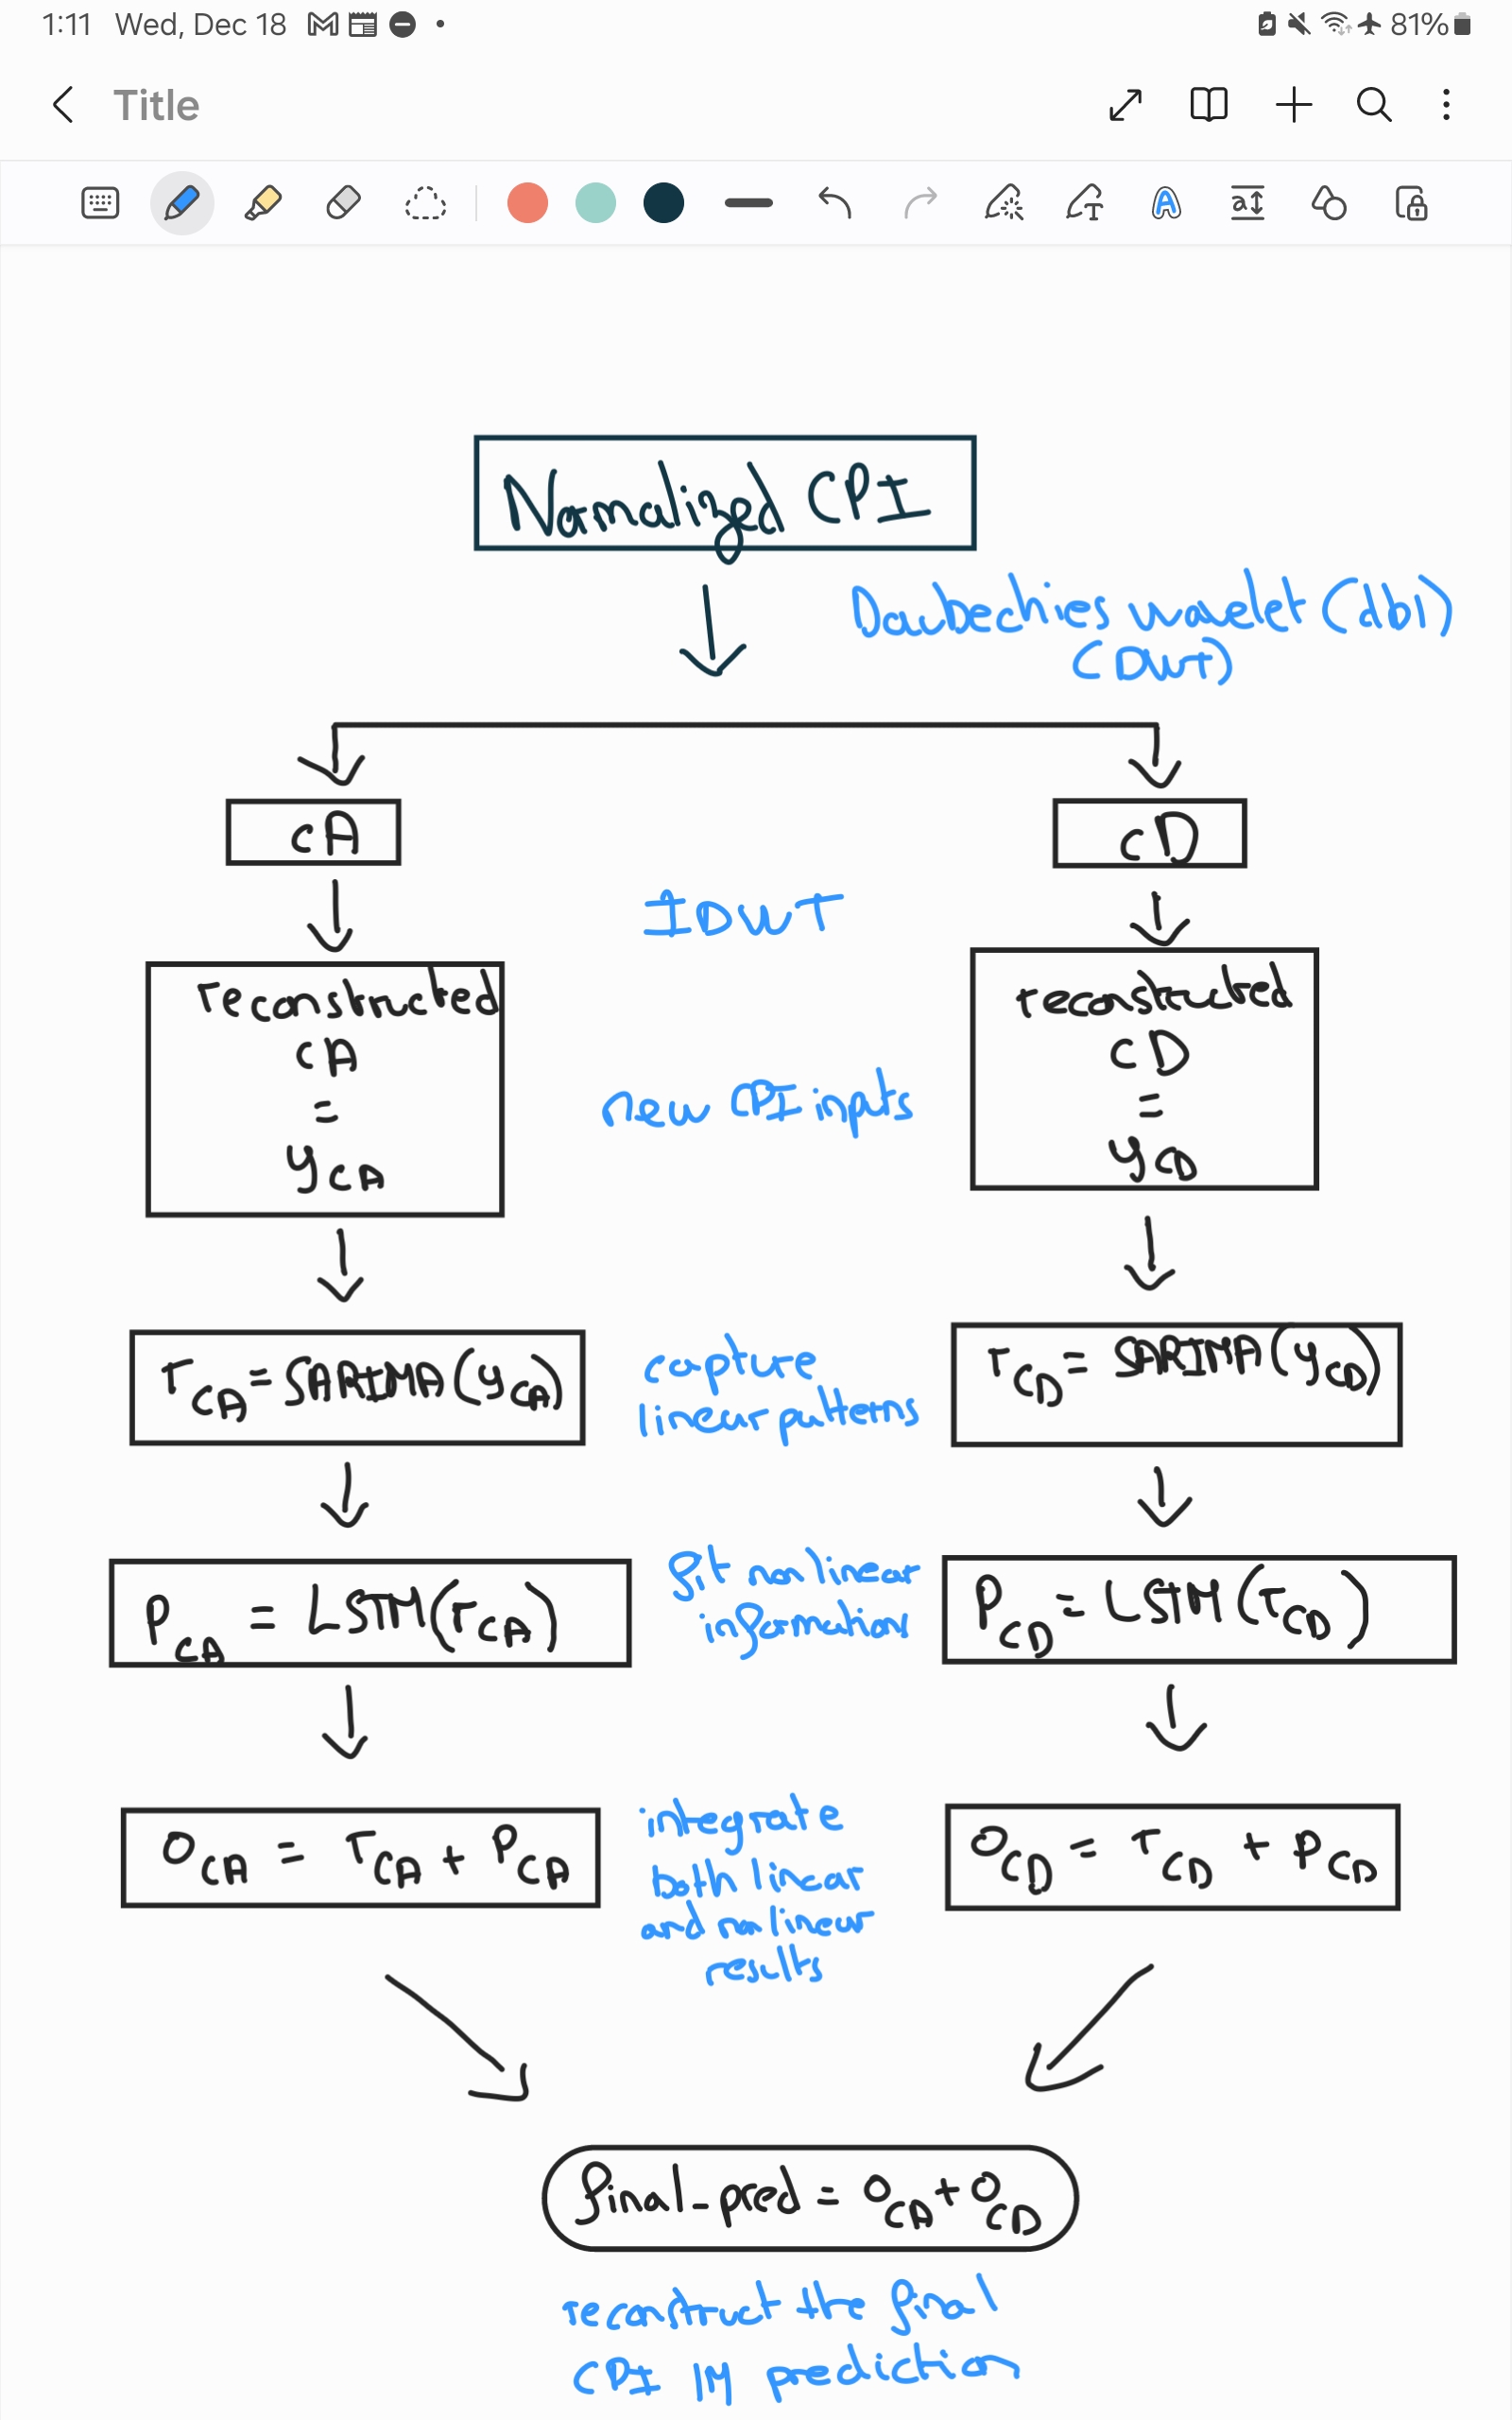 1:11 Wed, Dec 18
81%
Title
Normalized CPI
Daubechies wavelet (db1)
(DWT)
cA
cD
IDWT
reconstructed
cA
=
yCA
reconstructed
cD
=
yCD
new CPI inputs
rCA = SARIMA(yCA)
capture
linear patterns
rCD = SARIMA(yCD)
PCA = LSTM(rCA)
fit nonlinear
information
PCD = LSTM(rCD)
OCA = rCA + PCA
integrate
both linear
and nonlinear
results
OCD = rCD + PCD
final_pred = OCA + OCD
reconstruct the final
CPI 1M prediction